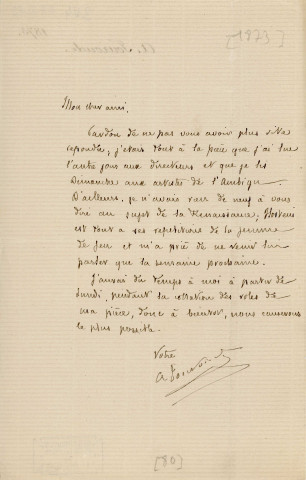 [1873]
Mon cher ami,
Pardon de ne pas vous avoir plus vite
repondu; j'étais tout à la pièce que j'ai lue
l'autre jour aux directeurs et que je lis
Dimanche aux artistes de l'Ambigu.
D'ailleurs, je n'avais rien de neuf à vous
dire au sujet de la Renaissance; Hostein
est tout à ses repetitions de la femme
de feu et m'a prié de ne venir lui
parler que la semaine prochaine.
J'aurai du temps à moi à partir de
lundi, pendant la des roles de
ma pièce, donc à bientôt, nous causerons
le plus possible.
Votre
[80]